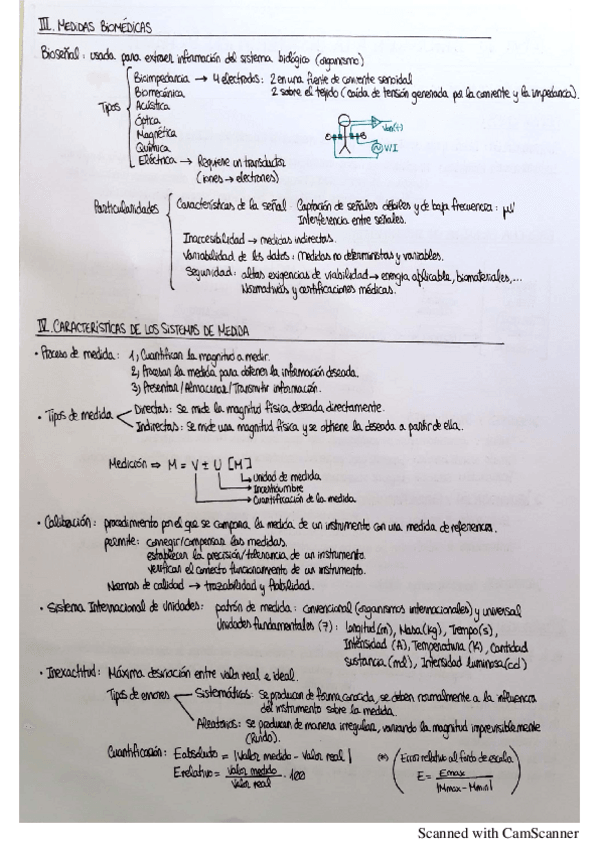 III. MEDIDAS BIOMÉDICAS
Bioseñal: usada para extraer información del sistema biológico (organismo)
Tipos
Bioimpedancia → 4 electrodos: 2 en una fuente de corriente senoidal
2 sobre el tejido (caída de tensión generada por la corriente y la impedancia).
Biomecánica
Acústica
Óptica
Magnética
Química
Eléctrica → Requiere un transductor
(iones → electrones)
V/I
Particularidades
Características de la señal Captación de señales débiles y de baja frecuencia: μV
Interferencia entre señales.
Inaccesibilidad → medidas indirectas.
Variabilidad de los datos: Medidas no deterministas y variables.
Seguridad: altas exigencias de viabilidad → energía aplicable, biomateriales,...
Normativas y certificaciones médicas.
IV. CARACTERÍSTICAS DE LOS SISTEMAS DE MEDIDA
• Proceso de medida: 1) Cuantifican la magnitud a medir.
2) Procesan la medida para obtener la información deseada.
3) Presentar/Almacenar/Transmitir información.
• Tipos de medida
Directas: Se mide la magnitud física deseada directamente.
Indirectas: Se mide una magnitud física y se obtiene la deseada a partir de ella.
Medición ⇒ M = V ± U [M]
Unidad de medida
Incertidumbre
Cuantificación de la medida
• Calibración: procedimiento por el que se compara la medida de un instrumento con una medida de referencia.
permite: corregir/compensar las medidas.
establecer la precisión/tolerancia de un instrumento.
verificar el correcto funcionamiento de un instrumento.
Normas de calidad → trazabilidad y fiabilidad.
• Sistema Internacional de Unidades: patrón de medida: convencional (organismos internacionales) y universal
Unidades fundamentales (7): Longitud(m), Masa(kg), Tiempo(s),
Intensidad (A), Temperatura (K), Cantidad
sustancia (mol), Intensidad luminosa(cd)
• Inexactitud: Máxima desviación entre valor real e ideal.
Tipos de errores
Sistemáticos: Se producen de forma conocida, se deben normalmente a la influencia
del instrumento sobre la medida.
Aleatorios: se producen de manera irregular, variando la magnitud imprevisiblemente
(Ruido).
Cuantificación: Eabsoluto = |Valor medido - Valor real|
Erelativo = Valor medido / Valor real · 100
(Error relativo al fondo de escala
E = Emax / |Mmax - Mmin|)
Scanned with CamScanner